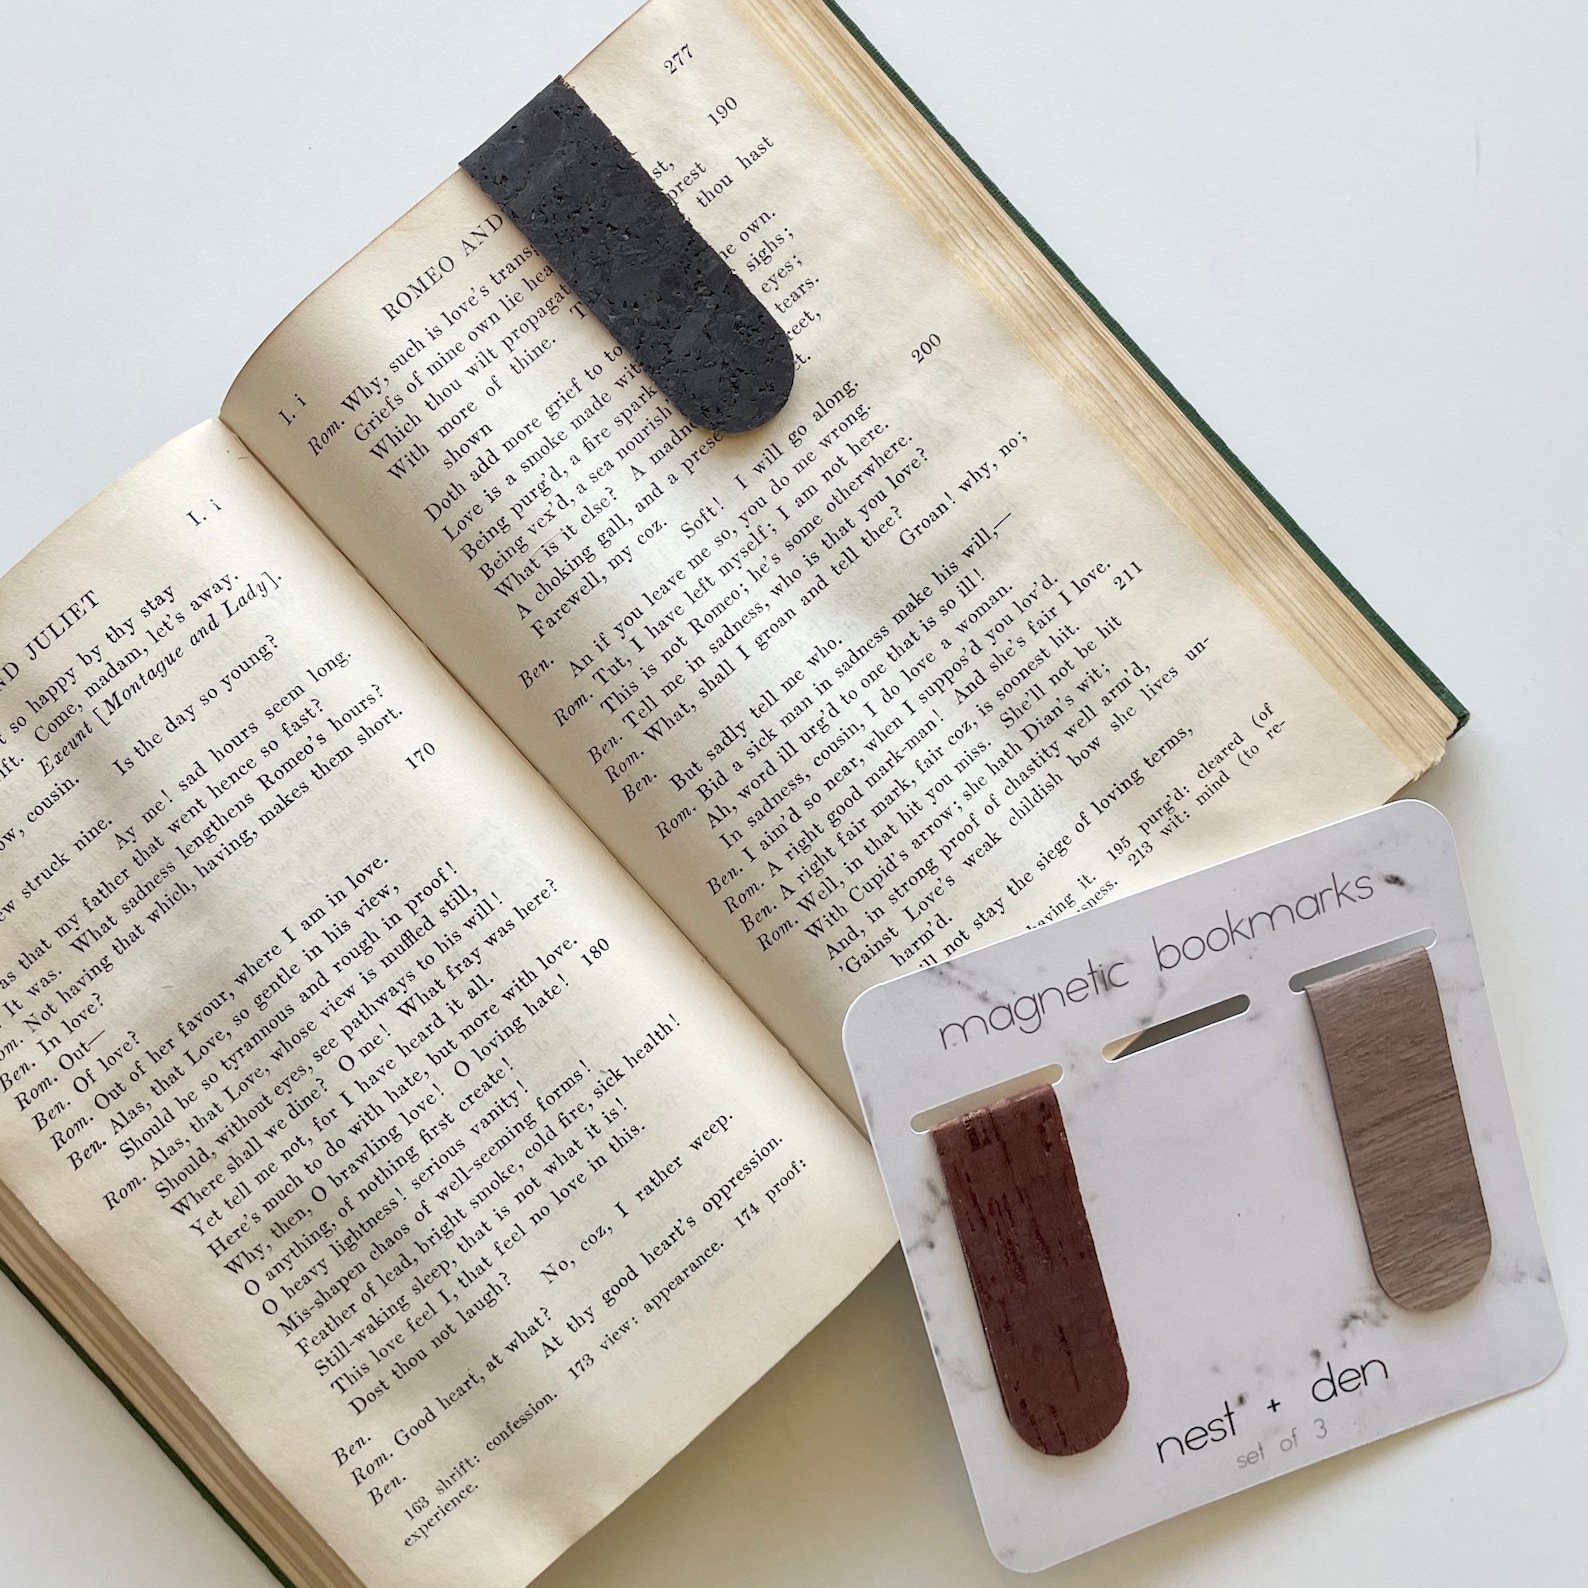 I. i
ND JULIET
so happy by thy stay
ift. Come, madam, let's away.
Exeunt [Montague and Lady].
ow, cousin. Is the day so young?
ew struck nine.
Ay me! sad hours seem long.
as that my father that went hence so fast?
It was. What sadness lengthens Romeo's hours?
Not having that which, having, makes them short.
170
Ben. In love?
Rom. Out—
Ben. Of love?
Rom. Out of her favour, where I am in love.
Ben. Alas, that Love, so gentle in his view,
Should be so tyrannous and rough in proof!
Rom. Alas, that Love, whose view is muffled still,
Should, without eyes, see pathways to his will!
Where shall we dine? O me! What fray was here?
Yet tell me not, for I have heard it all.
Here's much to do with hate, but more with love.
Why, then, O brawling love! O loving hate! 180
O anything, of nothing first create!
O heavy lightness! serious vanity!
Mis-shapen chaos of well-seeming forms!
Feather of lead, bright smoke, cold fire, sick health!
Still-waking sleep, that is not what it is!
This love feel I, that feel no love in this.
Dost thou not laugh?
Ben. No, coz, I rather weep.
Rom. Good heart, at what?
Ben. At thy good heart's oppression.
163 shrift: confession. 173 view: appearance. 174 proof:
experience.
I. i ROMEO AND 277
Rom. Why, such is love's trans
Griefs of mine own lie hea 190
Which thou wilt propagat st,
With more of thine. T prest
shown thou hast
Doth add more grief to to ne own.
Love is a smoke made wit sighs;
Being purg'd, a fire spark eyes;
Being vex'd, a sea nourish' tears.
What is it else? A madn eet,
A choking gall, and a prese et.
Farewell, my coz. 200
Ben. Soft! I will go along.
An if you leave me so, you do me wrong.
Rom. Tut, I have left myself; I am not here.
This is not Romeo; he's some otherwhere.
Ben. Tell me in sadness, who is that you love?
Rom. What, shall I groan and tell thee?
Ben. Groan! why, no;
But sadly tell me who.
Rom. Bid a sick man in sadness make his will,—
Ah, word ill urg'd to one that is so ill!
In sadness, cousin, I do love a woman.
Ben. I aim'd so near, when I suppos'd you lov'd. 211
Rom. A right good mark-man! And she's fair I love.
Ben. A right fair mark, fair coz, is soonest hit.
Rom. Well, in that hit you miss. She'll not be hit
With Cupid's arrow; she hath Dian's wit;
And, in strong proof of chastity well arm'd,
'Gainst Love's weak childish bow she lives un-
harm'd.
ll not stay the siege of loving terms,
195 purg'd: cleared (of
having it. 213 wit: mind (to re-
magnetic bookmarks
nest + den
set of 3